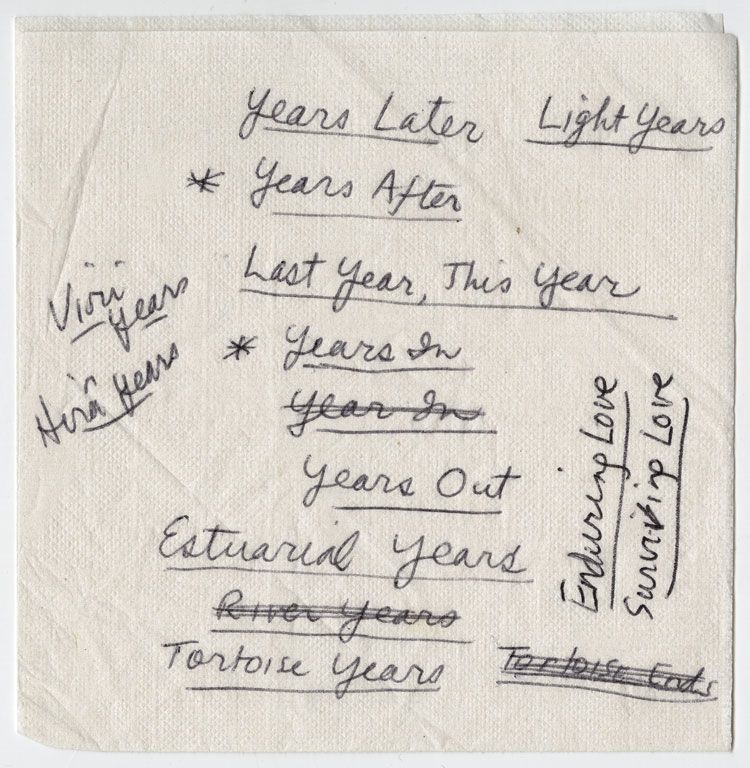 Years Later
Light Years
* Years After
Last Year, This Year
Years
Years
* Years In
Year In
Years Out
Estuarial Years
River Years
Tortoise Years
Tortoise
Enduring Love
Surviving Love